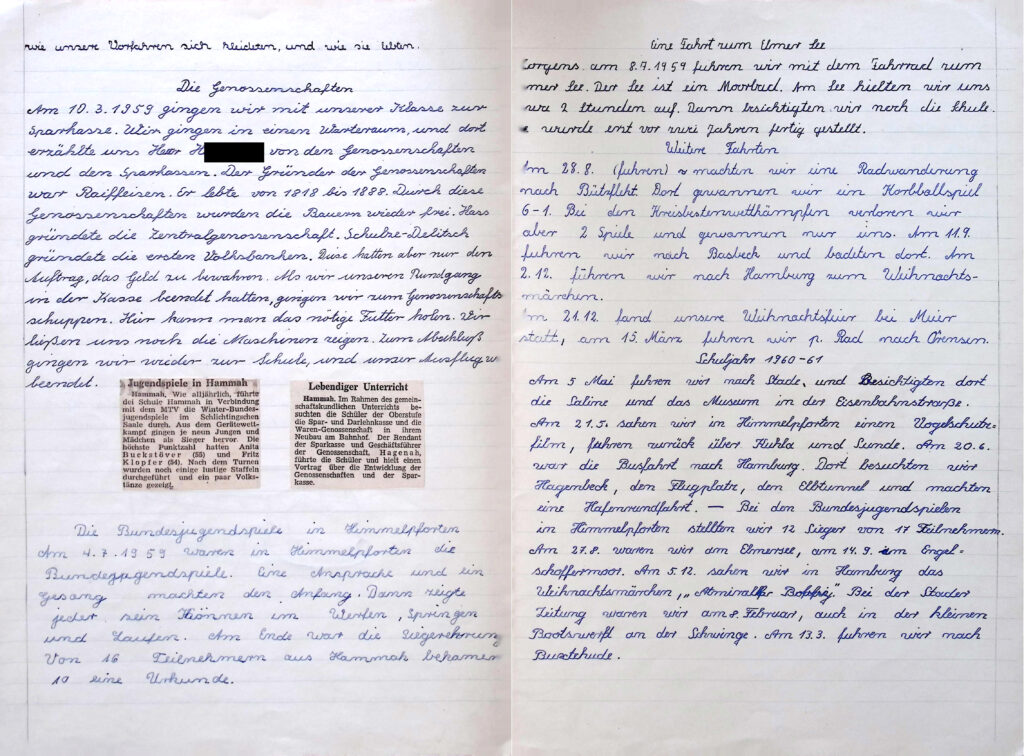 wie unsere Vorfahren sich kleideten, und wie sie lebten.
Die Genossenschaften
Am 10.3.1959 gingen wir mit unserer Klasse zur
Sparkasse. Wir gingen in einen Warteraum, und dort
erzählte uns Herr H von den Genossenschaften
und den Sparkassen. Der Gründer der Genossenschaften
war Raiffeisen. Er lebte von 1818 bis 1888. Durch diese
Genossenschaften wurden die Bauern wieder frei. Hass
gründete die Zentralgenossenschaft. Schulze-Delitsch
gründete die ersten Volksbanken. Diese hatten aber nur den
Auftrag, das Geld zu bewahren. Als wir unseren Rundgang
in der Kasse beendet hatten, gingen wir zum Genossenschafts
schuppen. Hier kann man das nötige Futter holen. Wir
ließen uns noch die Maschinen zeigen. Zum Abschluß
gingen wir wieder zur Schule, und unser Ausflug w
beendet.
Jugendspiele in Hammah
Hammah. Wie alljährlich, führte
die Schule Hammah in Verbindung
mit dem MTV die Winter-Bundes-
jugendspiele im Schlichtingschen
Saale durch. Aus dem Gerätewett-
kampf gingen je neun Jungen und
Mädchen als Sieger hervor. Die
höchste Punktzahl hatten Anita
Buckstöver (55) und Fritz
Klopfer (54). Nach dem Turnen
wurden noch einige lustige Staffeln
durchgeführt und ein paar Volks-
tänze gezeigt.
Lebendiger Unterricht
Hammah. Im Rahmen des gemein-
schaftskundlichen Unterrichts be-
suchten die Schüler der Oberstufe
die Spar- und Darlehnkasse und die
Waren-Genossenschaft in ihrem
Neubau am Bahnhof. Der Rendant
der Sparkasse und Geschäftsführer
der Genossenschaft, Hagenah,
führte die Schüler und hielt einen
Vortrag über die Entwicklung der
Genossenschaften und der Spar-
kasse.
Die Bundesjugendspiele in Himmelpforten
Am 4.7.1959 waren in Himmelpforten die
Bundesjugendspiele. Eine Ansprache und ein
Gesang machten den Anfang. Dann zeigte
jeder sein Können im Werfen, Springen
und Laufen. Am Ende war die Siegerehrung
Von 16 Teilnehmern aus Hammah bekamen
10 eine Urkunde.
Eine Fahrt zum Elmer See
orgens am 8.7.1959 fuhren wir mit dem Fahrrad zum
mer See. Der See ist ein Moorbad. Am See hielten wir uns
2 Stunden auf. Dann besichtigten wir noch die Schule.
wurde erst vor zwei Jahren fertig gestellt.
Weitere Fahrten
Am 28.8. (fuhren) machten wir eine Radwanderung
nach Bützfleht. Dort gewannen wir ein Korbballspiel
6-1. Bei den Kreisbestenwettkämpfen verloren wir
aber 2 Spiele und gewannen nur eins. Am 11.9.
fuhren wir nach Basbeck und badeten dort. Am
2.12. führen wir nach Hamburg zum Weihnachts-
märchen.
Am 21.12. fand unsere Weihnachtsfeier bei Meier
statt, am 15. März fuhren wir p. Rad nach Grensen.
Schuljahr 1960-61
Am 5 Mai fuhren wir nach Stade, und Besichtigten dort
die Saline und das Museum in der Eisenbahnstraße.
Am 21.5. sahen wir in Himmelpforten einen Vogelschutz-
film, fuhren zurück über Kuhla und Sunde. Am 20.6.
war die Busfahrt nach Hamburg. Dort besuchten wir
Hagenbeck, den Flugplatz, den Elbtunnel und machten
eine Hafenrundfahrt. — Bei den Bundesjugendspielen
in Himmelpforten stellten wir 12 Sieger von 17 Teilnehmern.
Am 27.8. waren wir am Elmersee, am 14.9. im Engel-
schoffermoor. Am 5.12. sahen wir in Hamburg das
Weihnachtsmärchen, Bei der Stader
Zeitung waren wir am 8. Februar, auch in der kleinen
Bootswerft an der Schwinge. Am 13.3. fuhren wir nach
Buxtehude.